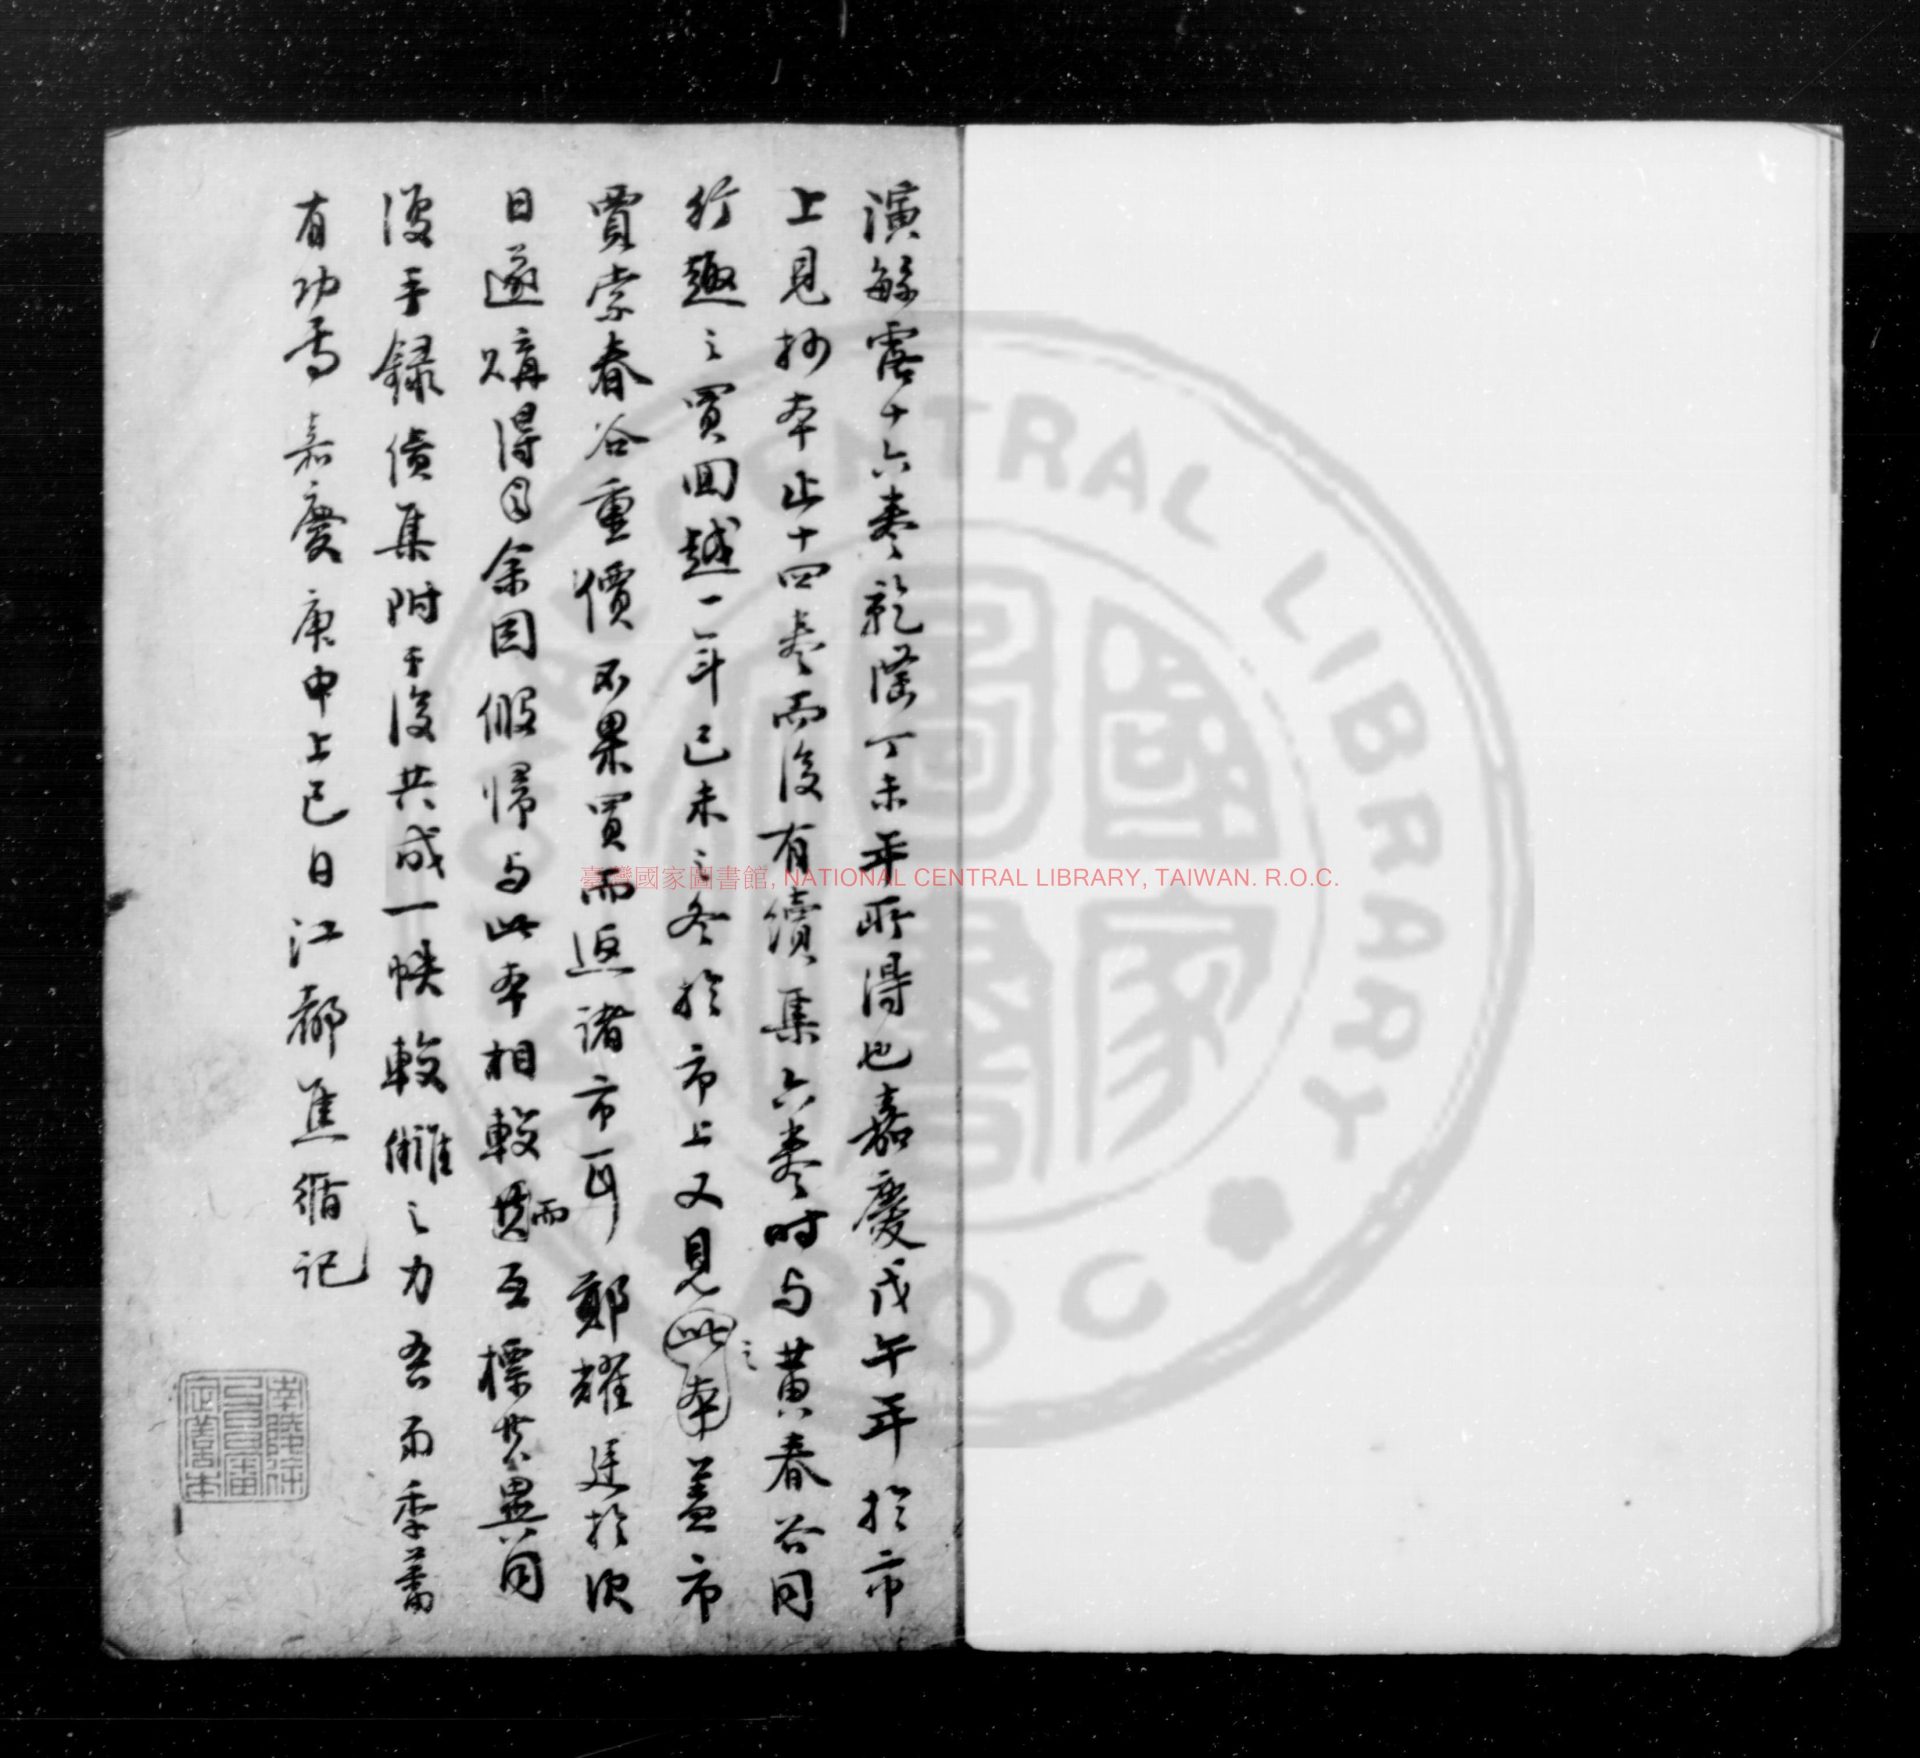 演繁露十六卷乾隆丁未年所得也嘉慶戊午年於市
上見抄本止十四卷而後有續集六卷時与黄春谷同
行趣之買回越一年己未之冬於市上又見之此本蓋市
賈索春谷重價不果買而返諸市耳鄭耀廷於次
日遂購得因余因假歸与此本相較而其互標其異同
復手錄續集附于後共成一帙較讎之力吾弟季蕃
有功焉嘉慶庚申上巳日江都焦循記
南陵徐
乃昌審
定善本
臺灣國家圖書館, NATIONAL CENTRAL LIBRARY, TAIWAN. R.O.C.
NATIONAL CENTRAL LIBRARY
國家圖書
R.O.C